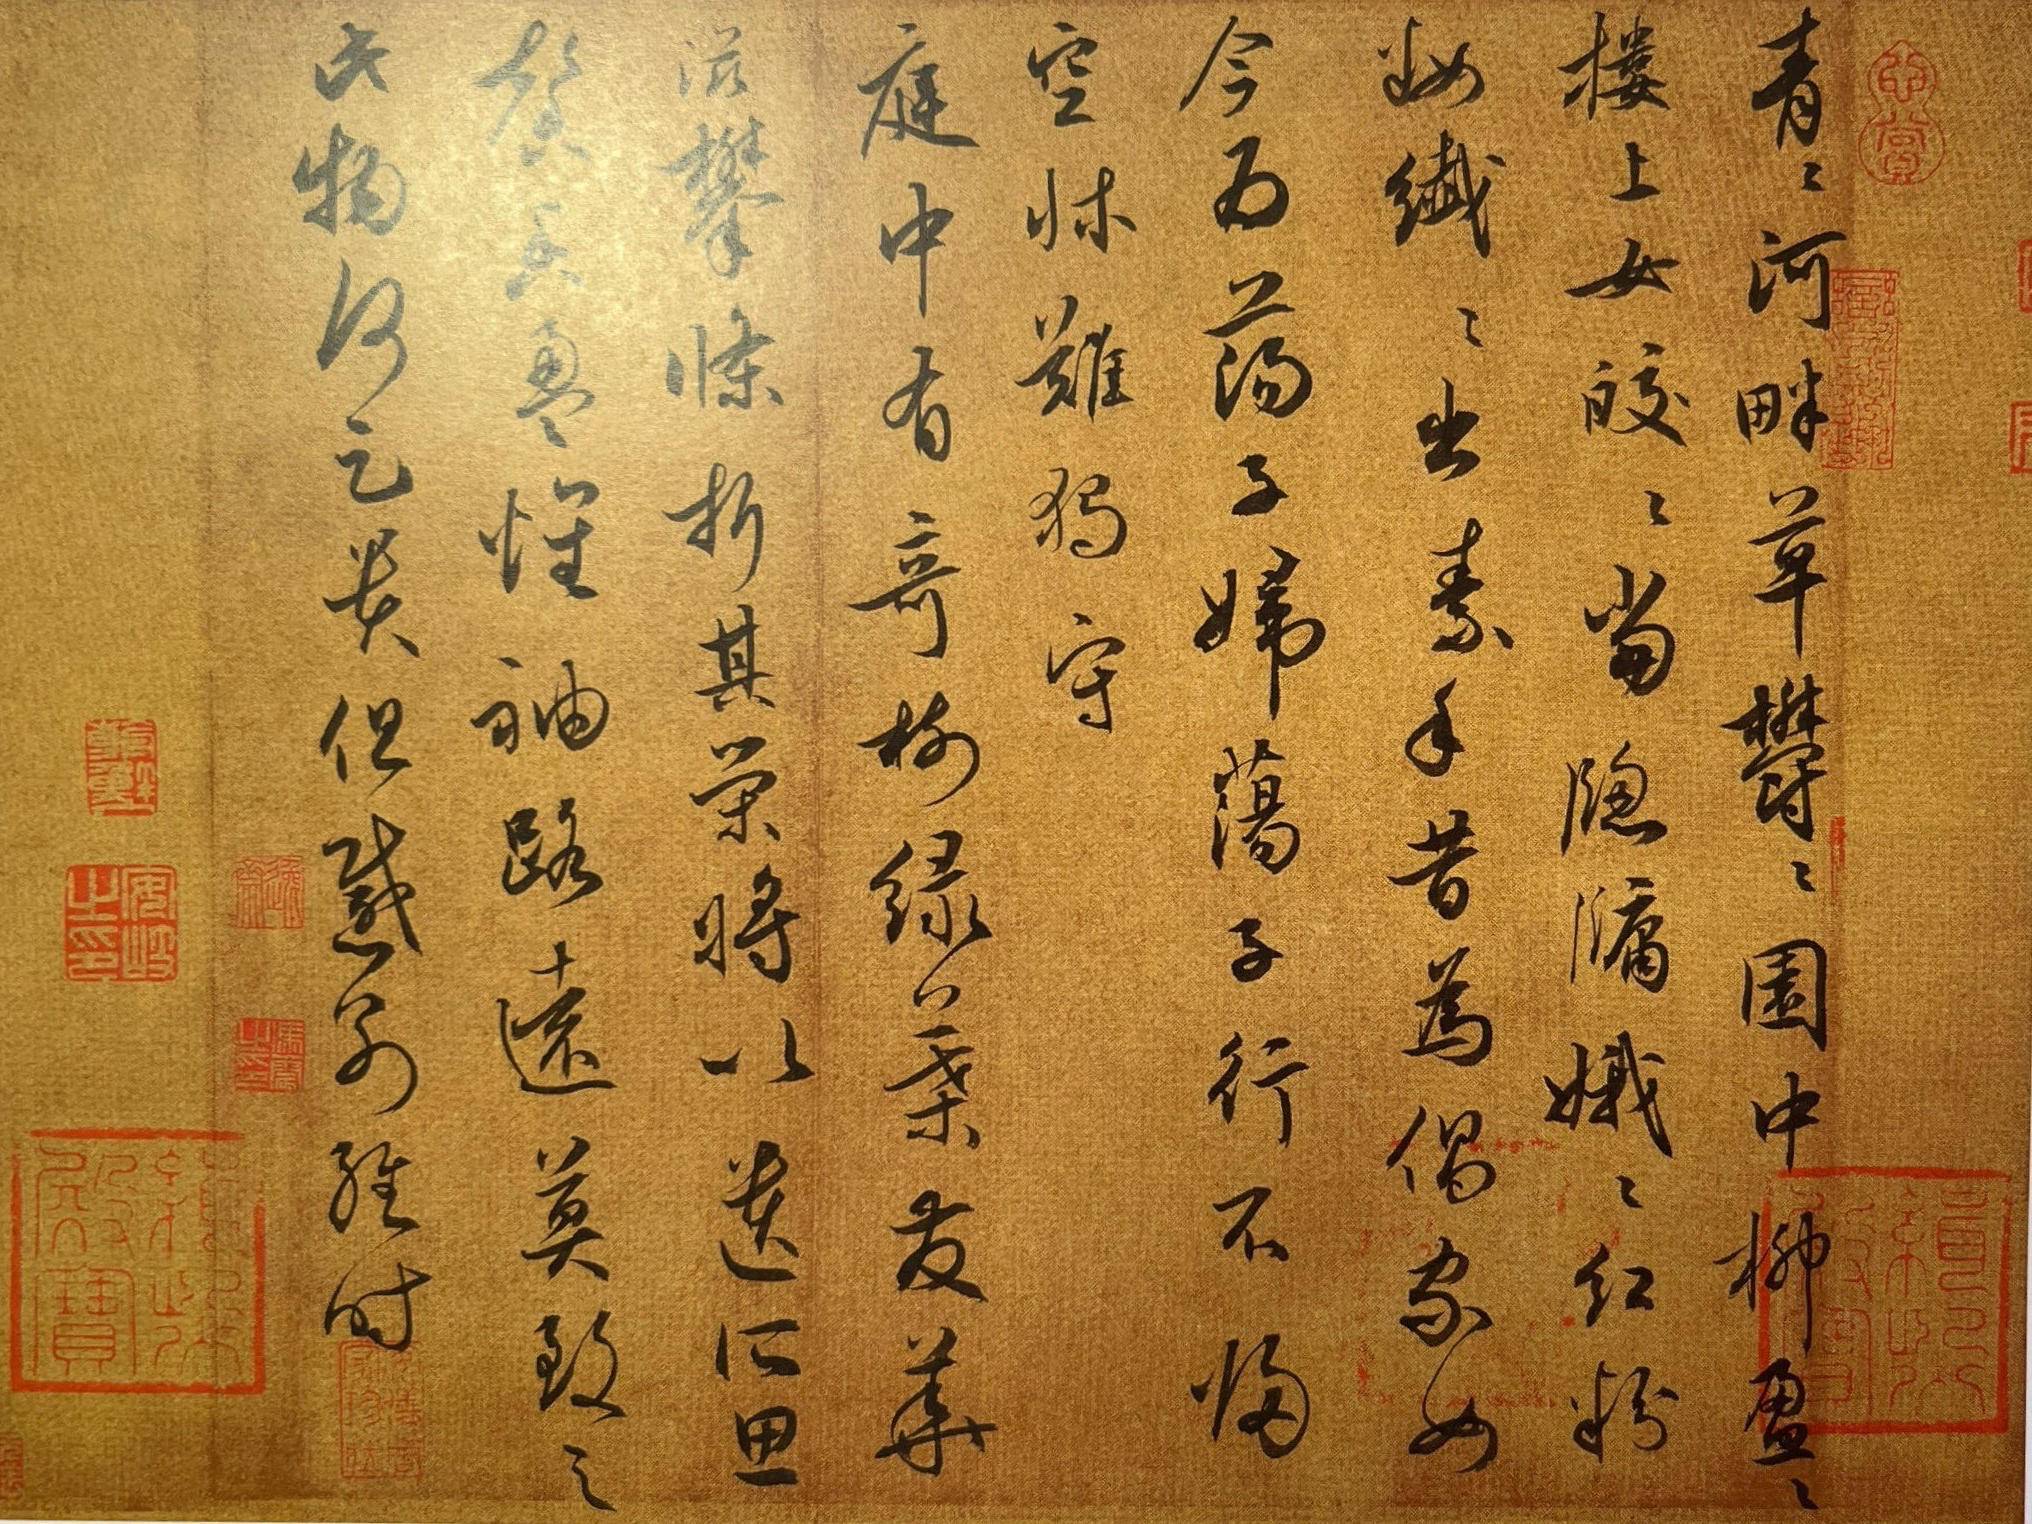 青〻河畔草鬱〻園中柳盈〻
樓上女皎〻當窓牖娥〻紅粉
粧纖〻出素手昔為倡家女
今為蕩子婦蕩子行不歸
空床難獨守
庭中有奇樹綠葉發華
滋攀條折其榮將以遺所思
馨香盈懷袖路遠莫致之
此物何足貴但感別經時
緝熙殿寶
安岐之印
緝熙殿寶